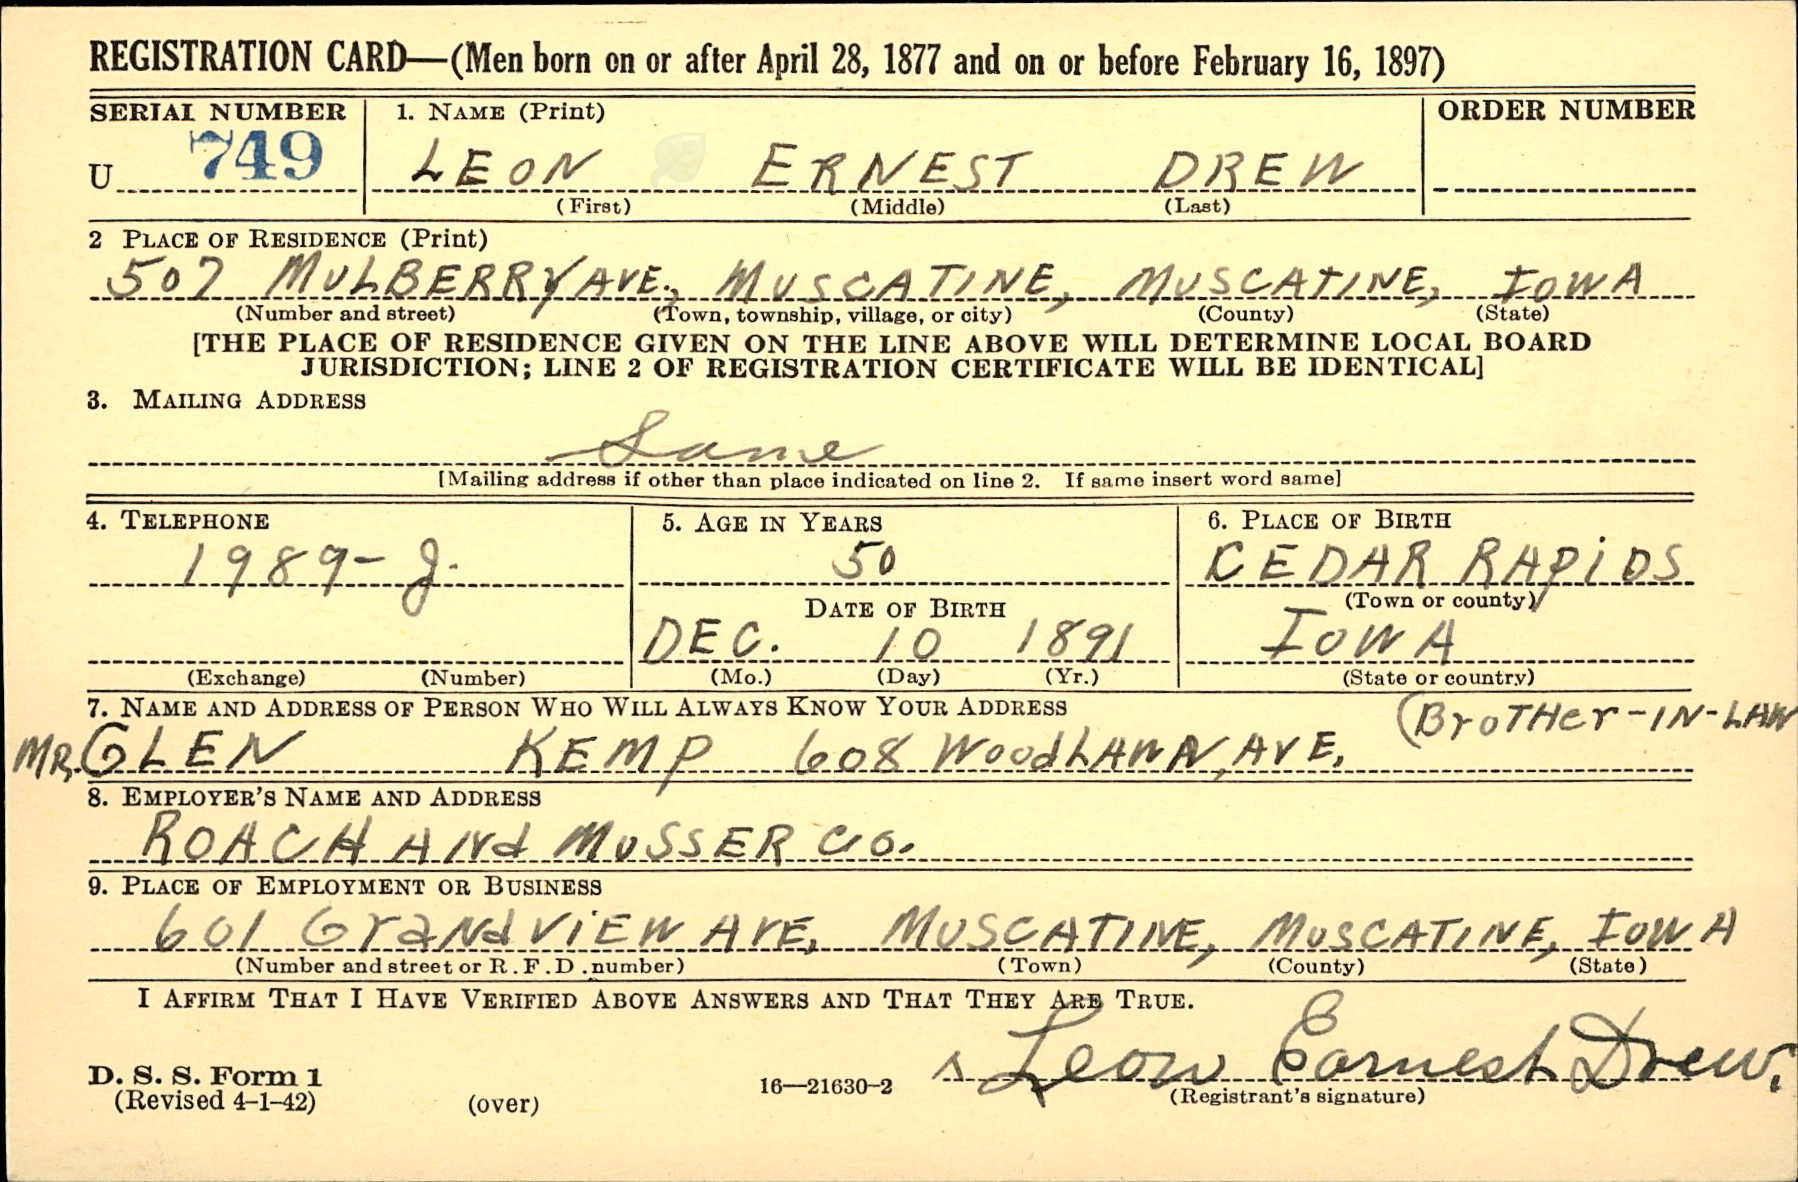 REGISTRATION CARD—(Men born on or after April 28, 1877 and on or before February 16, 1897)
SERIAL NUMBER 1. NAME (Print) ORDER NUMBER
U 749 LEON ERNEST DREW
(First) (Middle) (Last)
2 PLACE OF RESIDENCE (Print)
507 MULBERRY AVE., MUSCATINE, MUSCATINE, IOWA
(Number and street) (Town, township, village, or city) (County) (State)
[THE PLACE OF RESIDENCE GIVEN ON THE LINE ABOVE WILL DETERMINE LOCAL BOARD
JURISDICTION; LINE 2 OF REGISTRATION CERTIFICATE WILL BE IDENTICAL]
3. MAILING ADDRESS
Same
[Mailing address if other than place indicated on line 2. If same insert word same]
4. TELEPHONE 5. AGE IN YEARS 6. PLACE OF BIRTH
1989-J. 50 CEDAR RAPiDS
DATE OF BIRTH (Town or county)
DEC. 10 1891 IOWA
(Exchange) (Number) (Mo.) (Day) (Yr.) (State or country)
7. NAME AND ADDRESS OF PERSON WHO WILL ALWAYS KNOW YOUR ADDRESS (BroTHer-IN-LAW
MR. GLEN KEMP 608 WoodLAWN, AVE.
8. EMPLOYER'S NAME AND ADDRESS
ROACH ANd MUSSER CO.
9. PLACE OF EMPLOYMENT OR BUSINESS
601 GrandViEW AVE, MUSCATINE, MUSCATINE, IOWA
(Number and street or R.F.D. number) (Town) (County) (State)
I AFFIRM THAT I HAVE VERIFIED ABOVE ANSWERS AND THAT THEY ARE TRUE.
D. S. S. Form 1
(Revised 4-1-42) (over) 16—21630-2 Leon Earnest Drew.
(Registrant's signature)